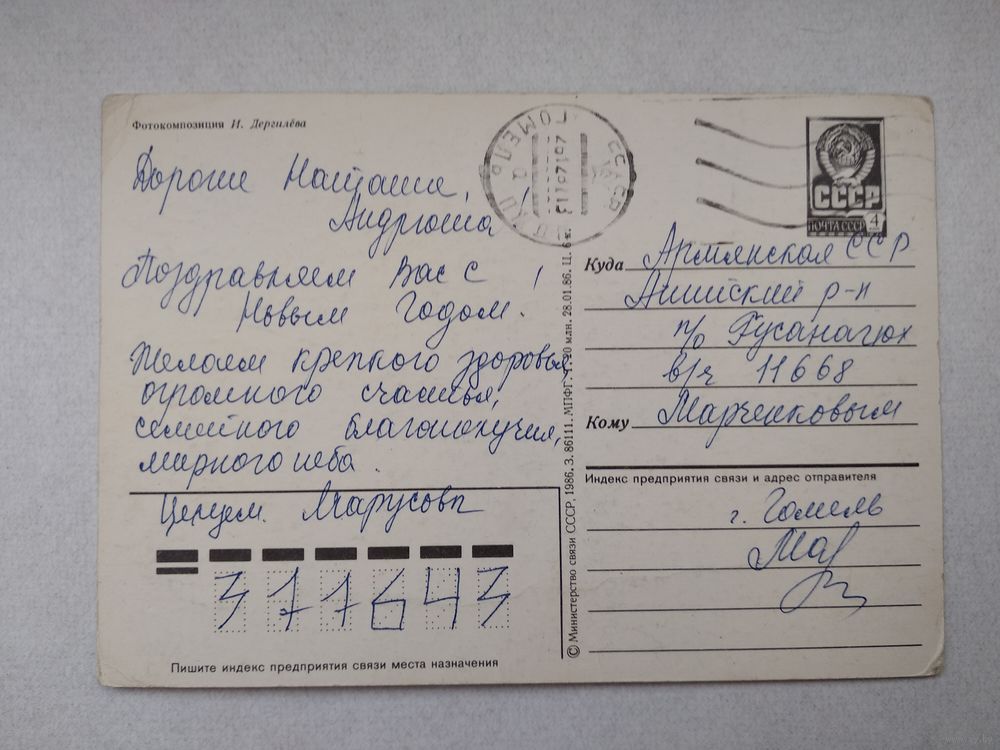 Фотокомпозиция И. Дергилёва
Дорогие Наташа,
Андрюша!
Поздравляем Вас с
Новым Годом!
Желаем крепкого здоровья,
огромного счастья,
семейного благополучия,
мирного неба.
Целуем.
377643
Пишите индекс предприятия связи места назначения
© Министерство связи СССР, 1986. З. 86111. МПФГ. 28.01.86. Ц. 6 к.
ГОМЕЛЬ
СССР
ПОЧТА СССР
4
Куда Армянская ССР
Анийский р-н
п/о Гусанагюх
в/ч 11668
Кому Марченковым
Индекс предприятия связи и адрес отправителя
г. Гомель